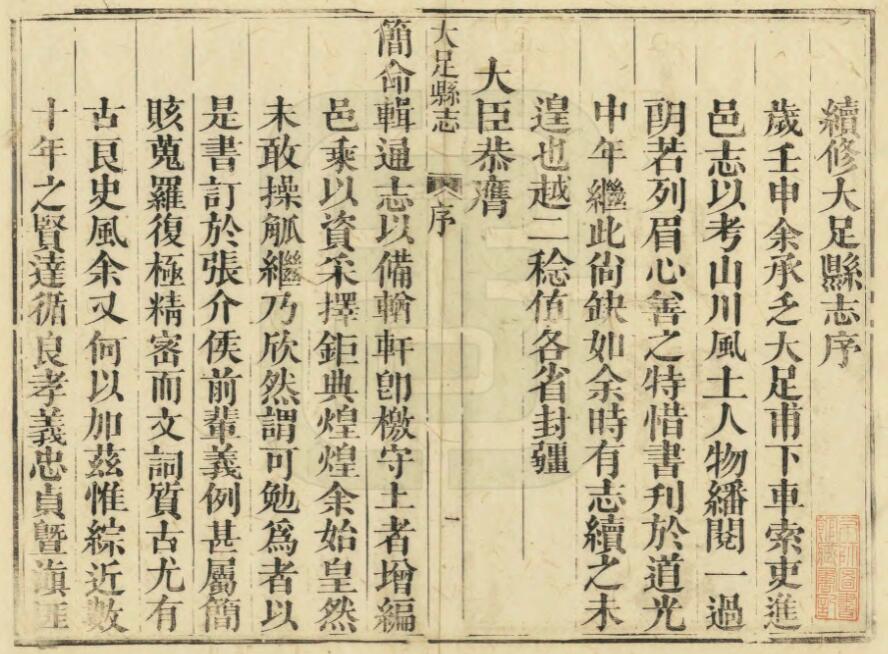 續修大足縣志序
歲壬申余承乏大足甫下車索吏進
邑志以考山川風土人物繙閱一過
朗若列眉心善之特惜書刋於道光
中年繼此尙缺如余時有志續之未
遑也越二稔值各省封疆
大臣恭膺
大足縣志 序 一
簡命輯通志以備輶軒卽檄守土者增編
邑乘以資采擇鉅典煌煌余始皇然
未敢操觚繼乃欣然謂可勉爲者以
是書訂於張介侯前輩義例甚屬簡
賅蒐羅復極精密而文詞質古尤有
古良史風余又何以加茲惟綜近數
十年之賢達循良孝義忠貞曁滇匪